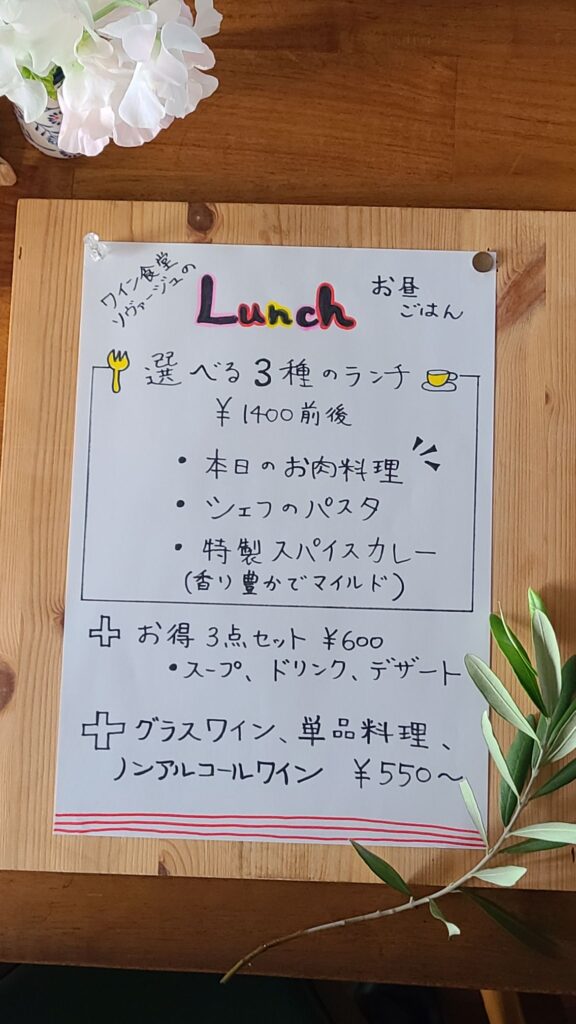 ワイン食堂
ソヴァージュの
Lunch
お昼
ごはん
選べる3種のランチ
¥1400前後
・本日のお肉料理
・シェフのパスタ
・特製スパイスカレー
(香り豊かでマイルド)
+ お得3点セット ¥600
・スープ、ドリンク、デザート
+ グラスワイン、単品料理、
ノンアルコールワイン ¥550〜